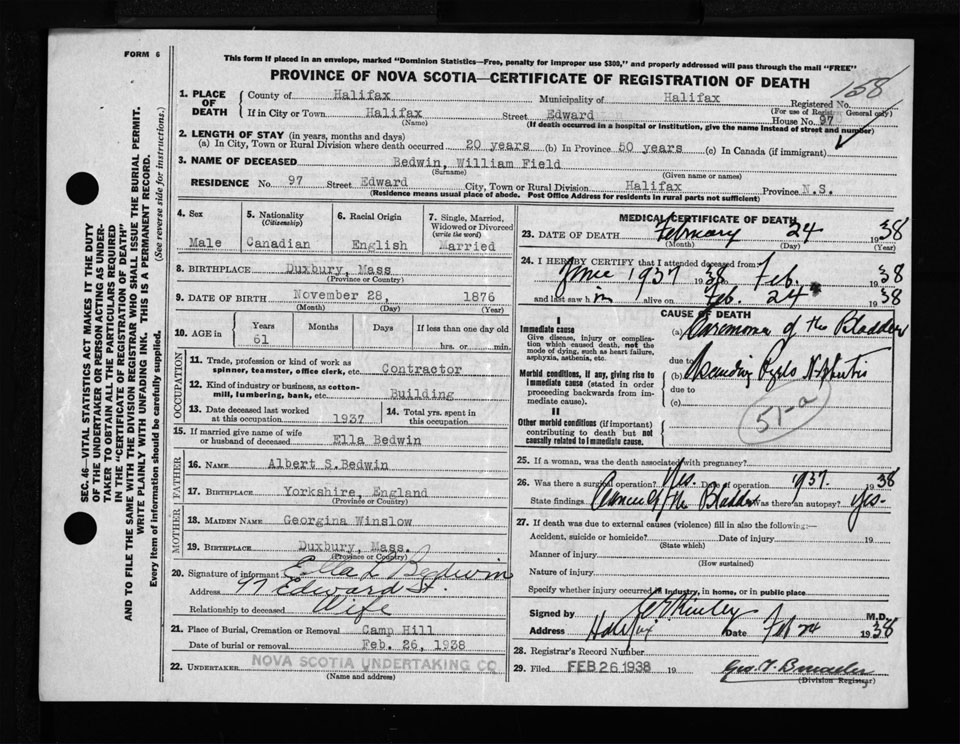 FORM 6
This form if placed in an envelope, marked "Dominion Statistics—Free, penalty for improper use $300," and properly addressed will pass through the mail "FREE"
PROVINCE OF NOVA SCOTIA—CERTIFICATE OF REGISTRATION OF DEATH
158
1. PLACE OF DEATH
County of Halifax Municipality of Halifax Registered No.
(For use of Registrar General only)
If in City or Town Halifax Street Edward House No. 97
(Name) (If death occurred in a hospital or institution, give the name instead of street and number)
2. LENGTH OF STAY (in years, months and days)
(a) In City, Town or Rural Division where death occurred 20 years (b) In Province 50 years (c) In Canada (if immigrant)
3. NAME OF DECEASED Bedwin, William Field
(Surname) (Given name or names)
RESIDENCE No. 97 Street Edward City, Town or Rural Division Halifax Province N.S.
(Residence means usual place of abode. Post Office Address for residents in rural parts not sufficient)
4. Sex Male
5. Nationality (Citizenship) Canadian
6. Racial Origin English
7. Single, Married, Widowed or Divorced (write the word) Married
8. BIRTHPLACE Duxbury, Mass
(Province or Country)
9. DATE OF BIRTH November 28, 1876
(Month) (Day) (Year)
10. AGE in Years Months Days If less than one day old
61 hrs. or min.
OCCUPATION
11. Trade, profession or kind of work as spinner, teamster, office clerk, etc. Contractor
12. Kind of industry or business, as cotton-mill, lumbering, bank, etc. Building
13. Date deceased last worked at this occupation 1937
14. Total yrs. spent in this occupation
15. If married give name of wife or husband of deceased Ella Bedwin
FATHER
16. NAME Albert S.Bedwin
17. BIRTHPLACE Yorkshire, England
(Province or Country)
MOTHER
18. MAIDEN NAME Georgina Winslow
19. BIRTHPLACE Duxbury, Mass.
(Province or Country)
20. Signature of informant Ella L Bedwin
Address 97 Edward St.
Relationship to deceased Wife
21. Place of Burial, Cremation or Removal Camp Hill
Date of burial or removal Feb. 26, 1938
22. UNDERTAKER NOVA SCOTIA UNDERTAKING CO
(Name and address)
MEDICAL CERTIFICATE OF DEATH
23. DATE OF DEATH February 24 1938
(Month) (Day) (Year)
24. I HEREBY CERTIFY that I attended deceased from
June 1937 1938 Feb. 1938
and last saw him alive on Feb. 24 1938
CAUSE OF DEATH
I
Immediate cause
Give disease, injury or complication which caused death, not the mode of dying, such as heart failure, asphyxia, asthenia, etc.
(a) of the Bladder
due to
Morbid conditions, if any, giving rise to immediate cause (stated in order proceeding backwards from immediate cause).
(b) Ascending
due to
(c)
51-a
II
Other morbid conditions (if important) contributing to death but not causally related to immediate cause.
25. If a woman, was the death associated with pregnancy?
26. Was there a surgical operation? Yes. Date of operation 1937. 1938
State findings Cancer of the Bladder Was there an autopsy? Yes-
27. If death was due to external causes (violence) fill in also the following:—
Accident, suicide or homicide? Date of injury 19
(State which)
Manner of injury
(How sustained)
Nature of injury
Specify whether injury occurred in industry, in home, or in public place
Signed by M.D.
Address Halifax Date Feb 24 1938
28. Registrar's Record Number
29. Filed FEB 26 1938 19
(Division Registrar)
SEC. 46—VITAL STATISTICS ACT MAKES IT THE DUTY
OF THE UNDERTAKER OR PERSON ACTING AS UNDER-
TAKER TO OBTAIN ALL THE PARTICULARS REQUIRED
IN THE "CERTIFICATE OF REGISTRATION OF DEATH"
AND TO FILE THE SAME WITH THE DIVISION REGISTRAR WHO SHALL ISSUE THE BURIAL PERMIT.
WRITE PLAINLY WITH UNFADING INK. THIS IS A PERMANENT RECORD.
Every item of information should be carefully supplied. (See reverse side for instructions.)